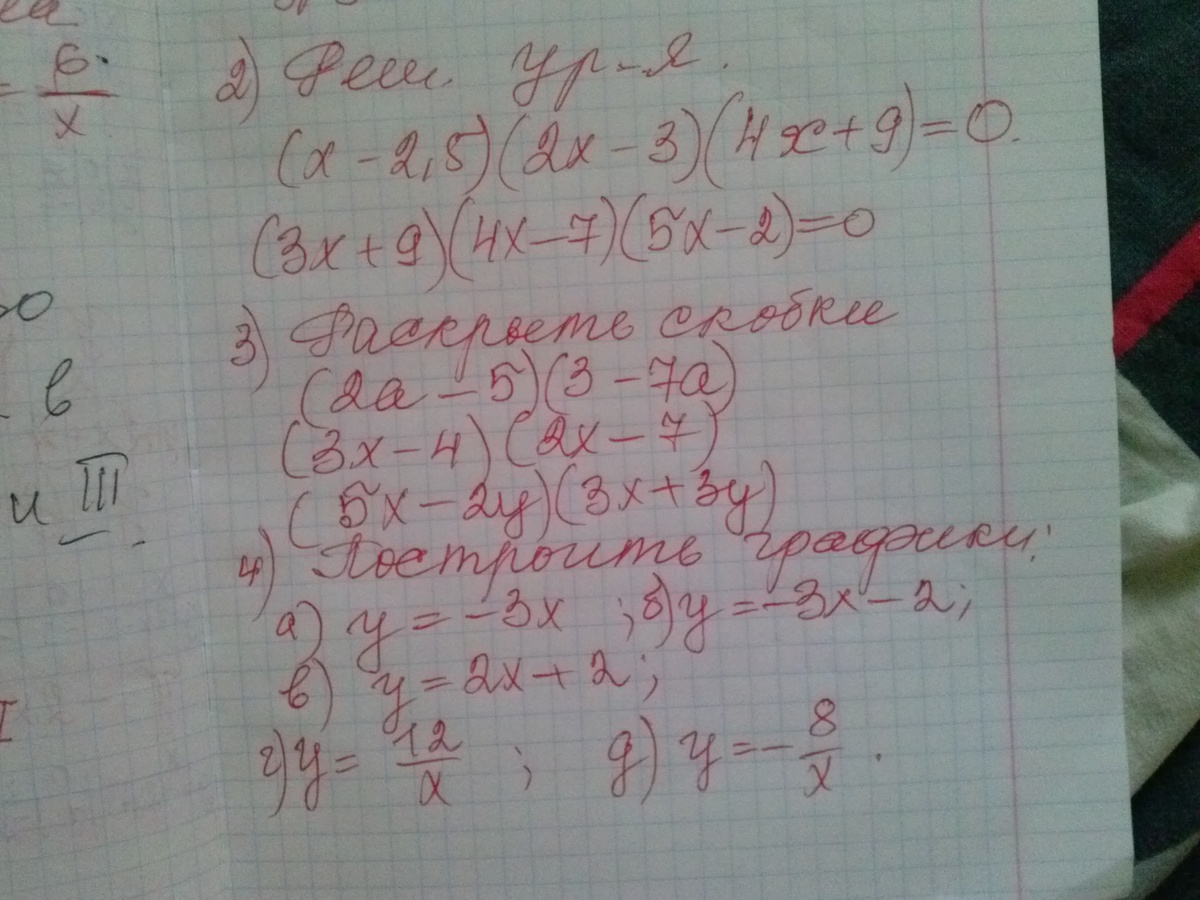 = 6/x
2) Реш. ур-я.
(x - 2,5)(2x - 3)(4x + 9) = 0.
(3x + 9)(4x - 7)(5x - 2) = 0
3) Раскрыть скобки
(2a - 5)(3 - 7a)
в
(3x - 4)(2x - 7)
и III
(5x - 2y)(3x + 3y)
4) Построить графики:
а) y = -3x ; б) y = -3x - 2;
в) y = 2x + 2;
I
г) y = 12/x ; д) y = - 8/x .